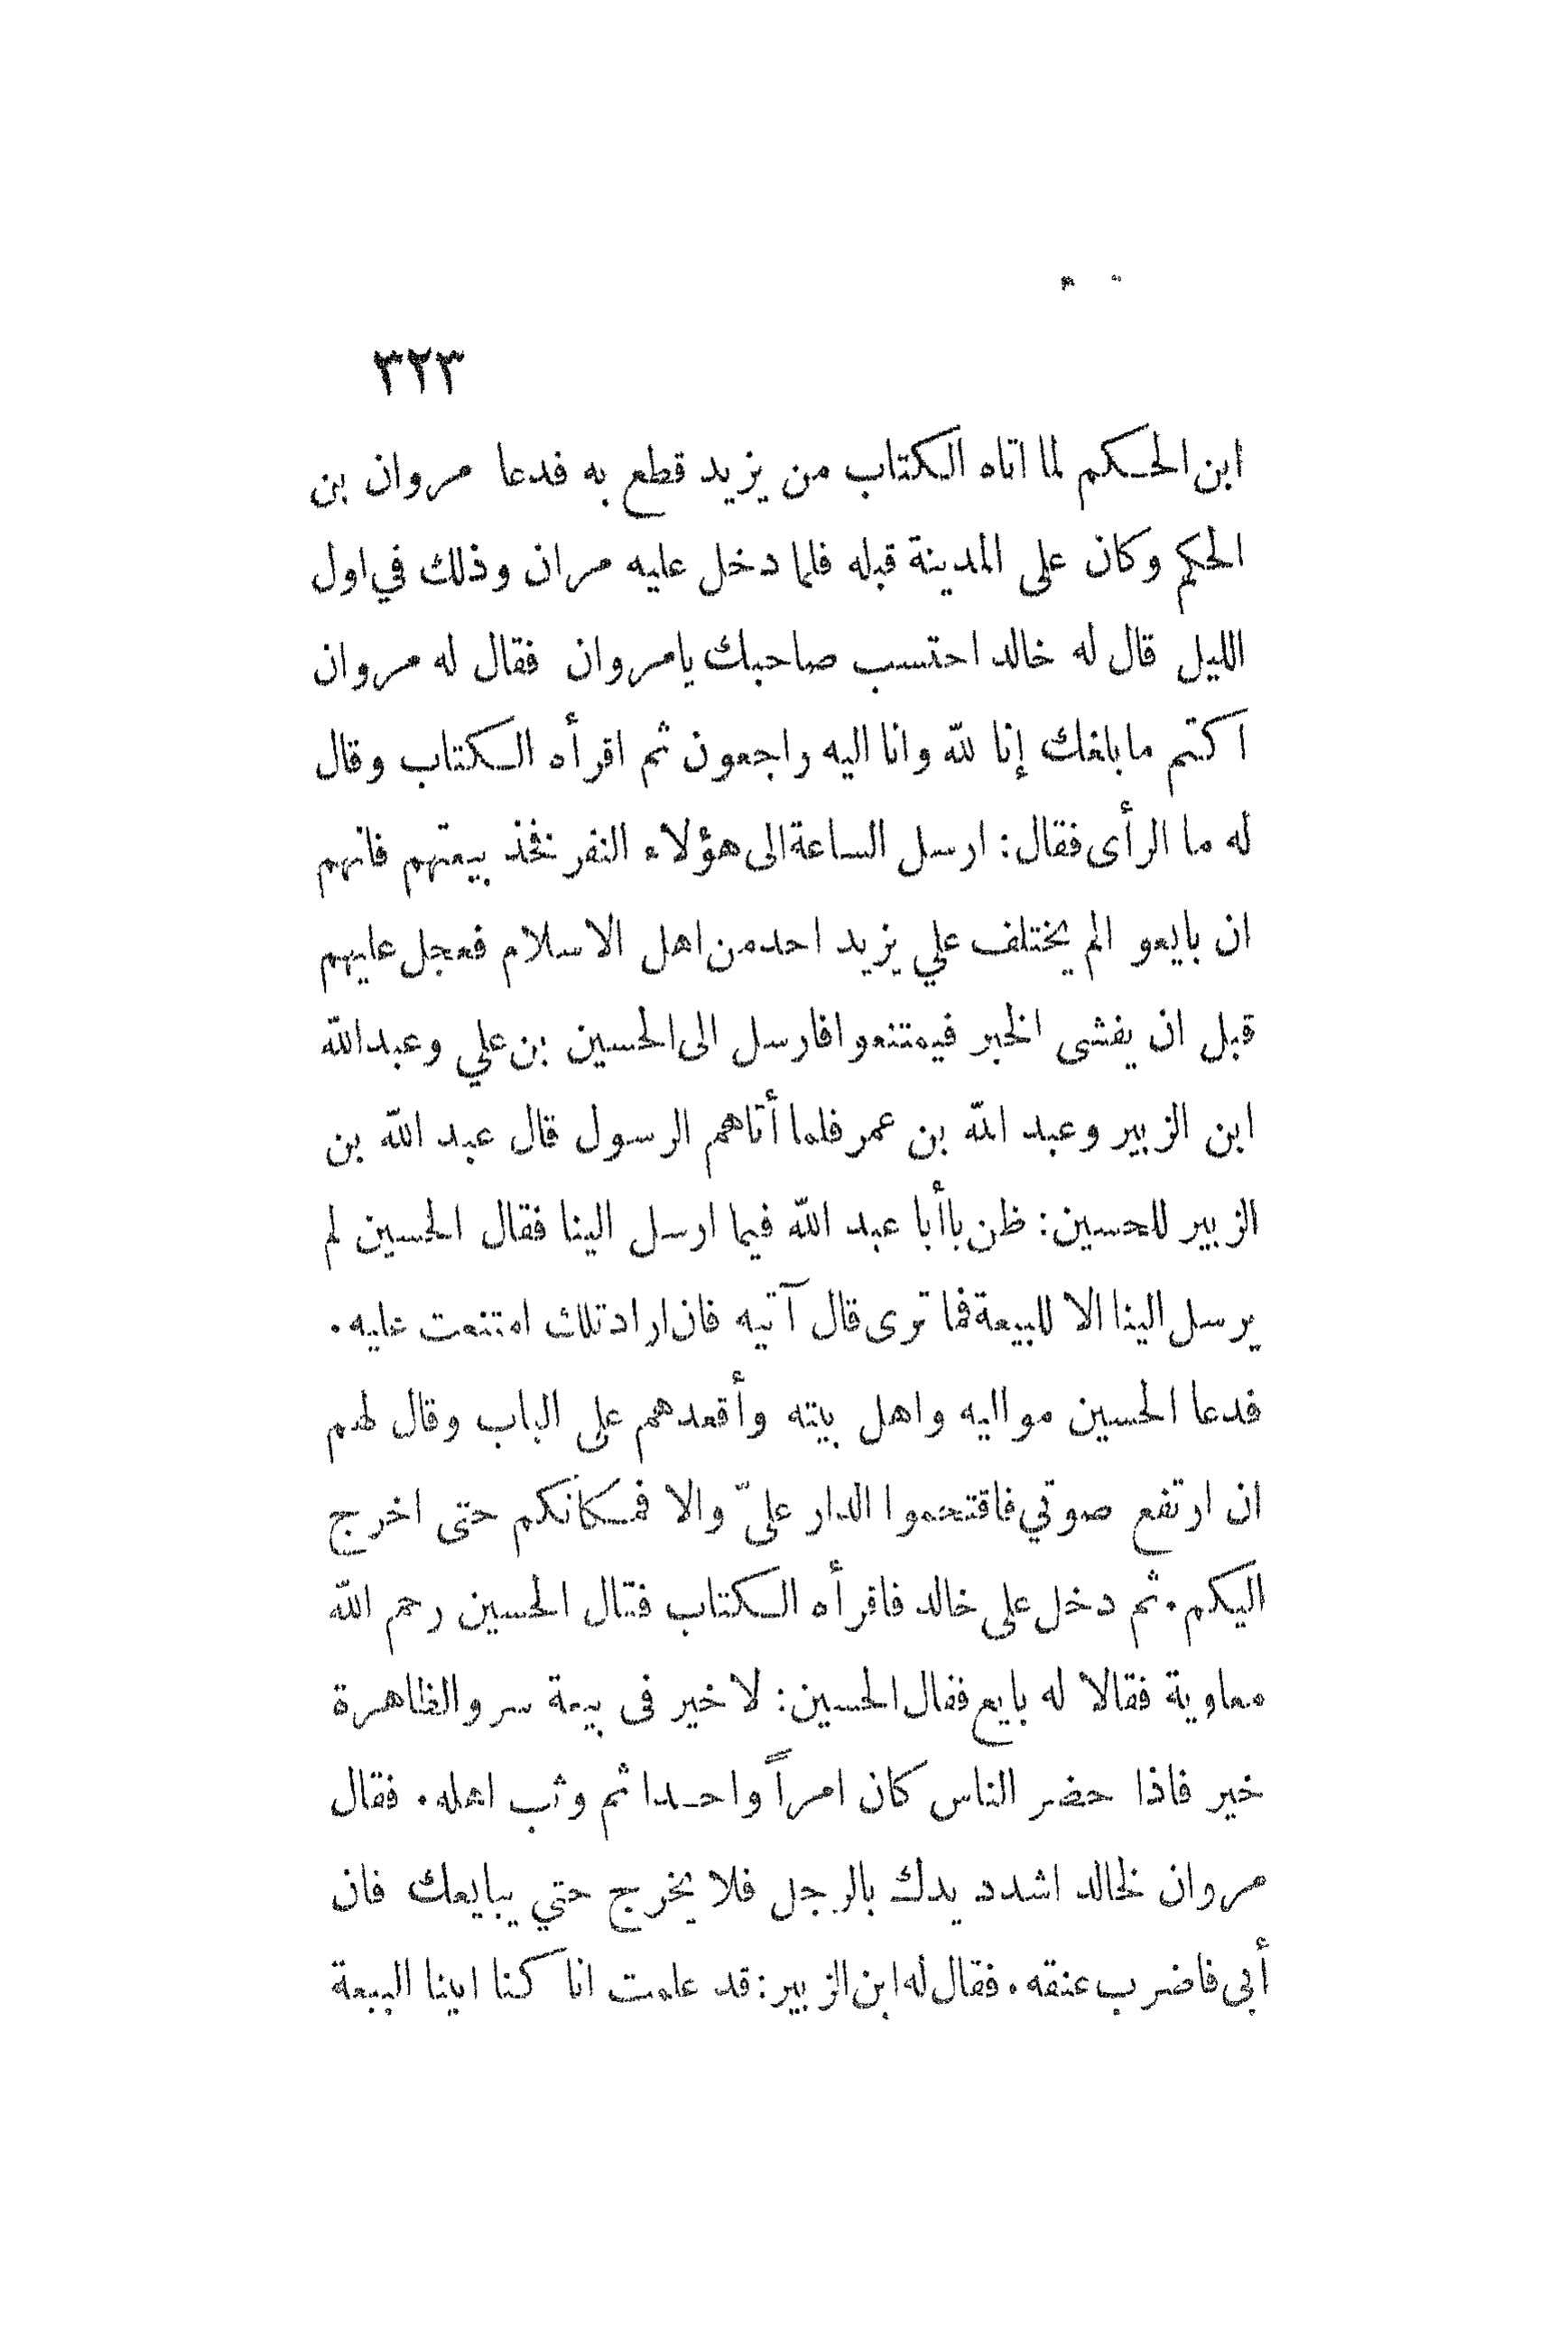 ٣٢٣
ابن الحكم لما اتاه الكتاب من يزيد قطع به فدعا مروان بن
الحكم وكان على المدينة قبله فلما دخل عليه مران وذلك في اول
الليل قال له خالد احتسب صاحبك يامروان فقال له مروان
اكتم مابلغك إنا لله وانا اليه راجعون ثم اقرأه الكتاب وقال
له ما الرأى فقال: ارسل الساعة الى هؤلاء النفر نخذ بيعتهم فانهم
ان بايعو الم يختلف علي يزيد احد من اهل الاسلام فعجل عليهم
قبل ان يفشى الخبر فيمتنعوا فارسل الى الحسين بن علي وعبدالله
ابن الزبير وعبد الله بن عمر فلما أتاهم الرسول قال عبد الله بن
الزبير للحسين: ظن باأبا عبد الله فيما ارسل الينا فقال الحسين لم
يرسل الينا الا للبيعة فما ترى قال آتيه فان ارادتلك امتنعت عليه.
فدعا الحسين مواليه واهل بيته وأقعدهم على الباب وقال لهم
ان ارتفع صوتي فاقتحموا الدار علىّ والا فمكانكم حتى اخرج
اليكم. ثم دخل على خالد فاقرأه الكتاب فقال الحسين رحم الله
معاوية فقالا له بايع فقال الحسين: لا خير فى بيعة سر والظاهرة
خير فاذا حضر الناس كان امراً واحدا ثم وثب اهله. فقال
مروان لخالد اشدد يدك بالرجل فلا يخرج حتي يبايعك فان
أبى فاضرب عنقه. فقال له ابن الزبير: قد علمت انا كنا ابينا البيعة